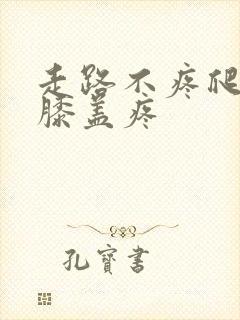 走路不疼爬
膝盖疼
孔寳書